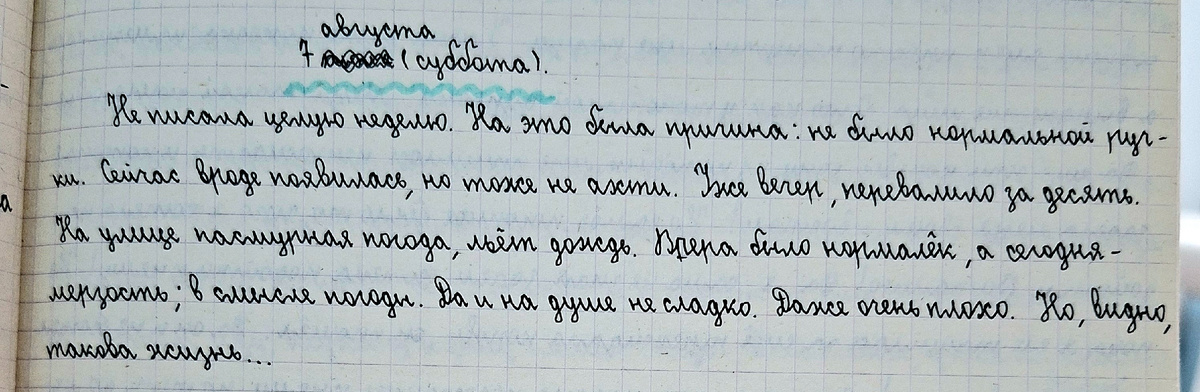 августа
7 (суббота).
Не писала целую неделю. На это была причина: не было нормальной руч-
ки. Сейчас вроде появилась, но тоже не ахти. Уже вечер, перевалило за десять.
На улице пасмурная погода, льёт дождь. Вчера было нормалёк, а сегодня -
мерзость; в смысле погоды. Да и на душе не сладко. Даже очень плохо. Но, видно,
такова жизнь...
а